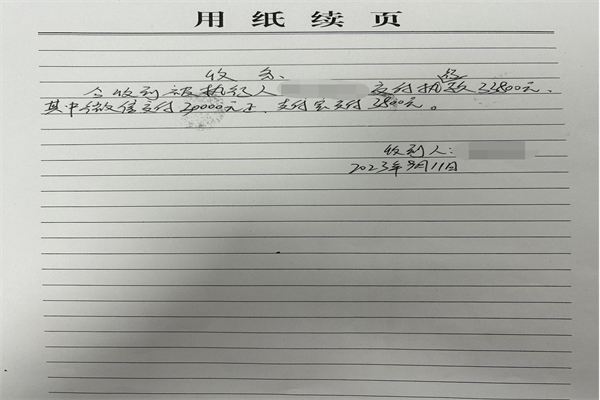 用纸续页
收条
今收到被执行人 交付执款23800元、
其中微信支付20000元正、支付宝支付3800元。
收到人：
2023年9月11日